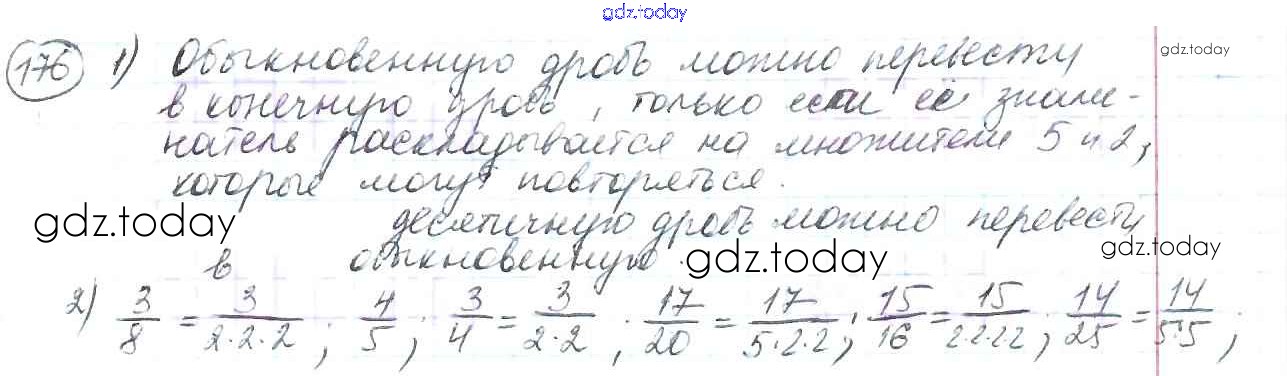 gdz.today
176 1) Обыкновенную дробь можно перевести
gdz.today
в конечную дробь, только если её знаме-
натель раскладывается на множители 5 и 2,
которые могут повторяться.
gdz.today десятичную дробь можно перевести
в обыкновенную. gdz.today gdz.today
2) 3/8 = 3/(2·2·2); 4/5; 3/4 = 3/(2·2); 17/20 = 17/(5·2·2); 15/16 = 15/(2·2·2·2); 14/25 = 14/(5·5);